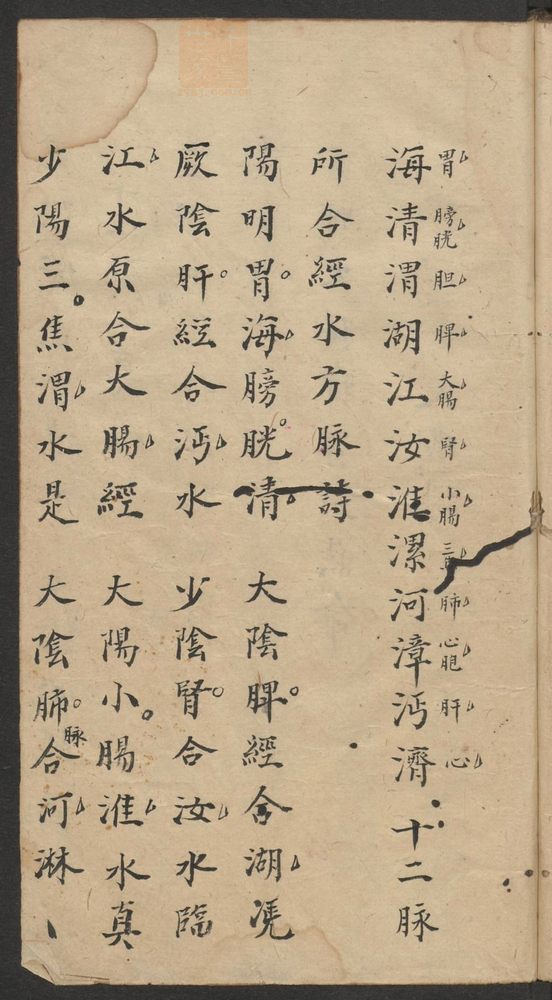 海清渭湖江汝淮漯河漳沔濟 十二脉
胃 膀胱 胆 脾 大腸 腎 小腸 三焦 肺 心胞 肝 心
所合經水方脉詩
陽明胃海膀胱清 大陰脾經合湖凴
厥陰肝経合沔水 少陰腎合汝水臨
江水原合大腸經 大陽小腸淮水真
少陽三焦渭水是 大陰肺脉合河淋丶